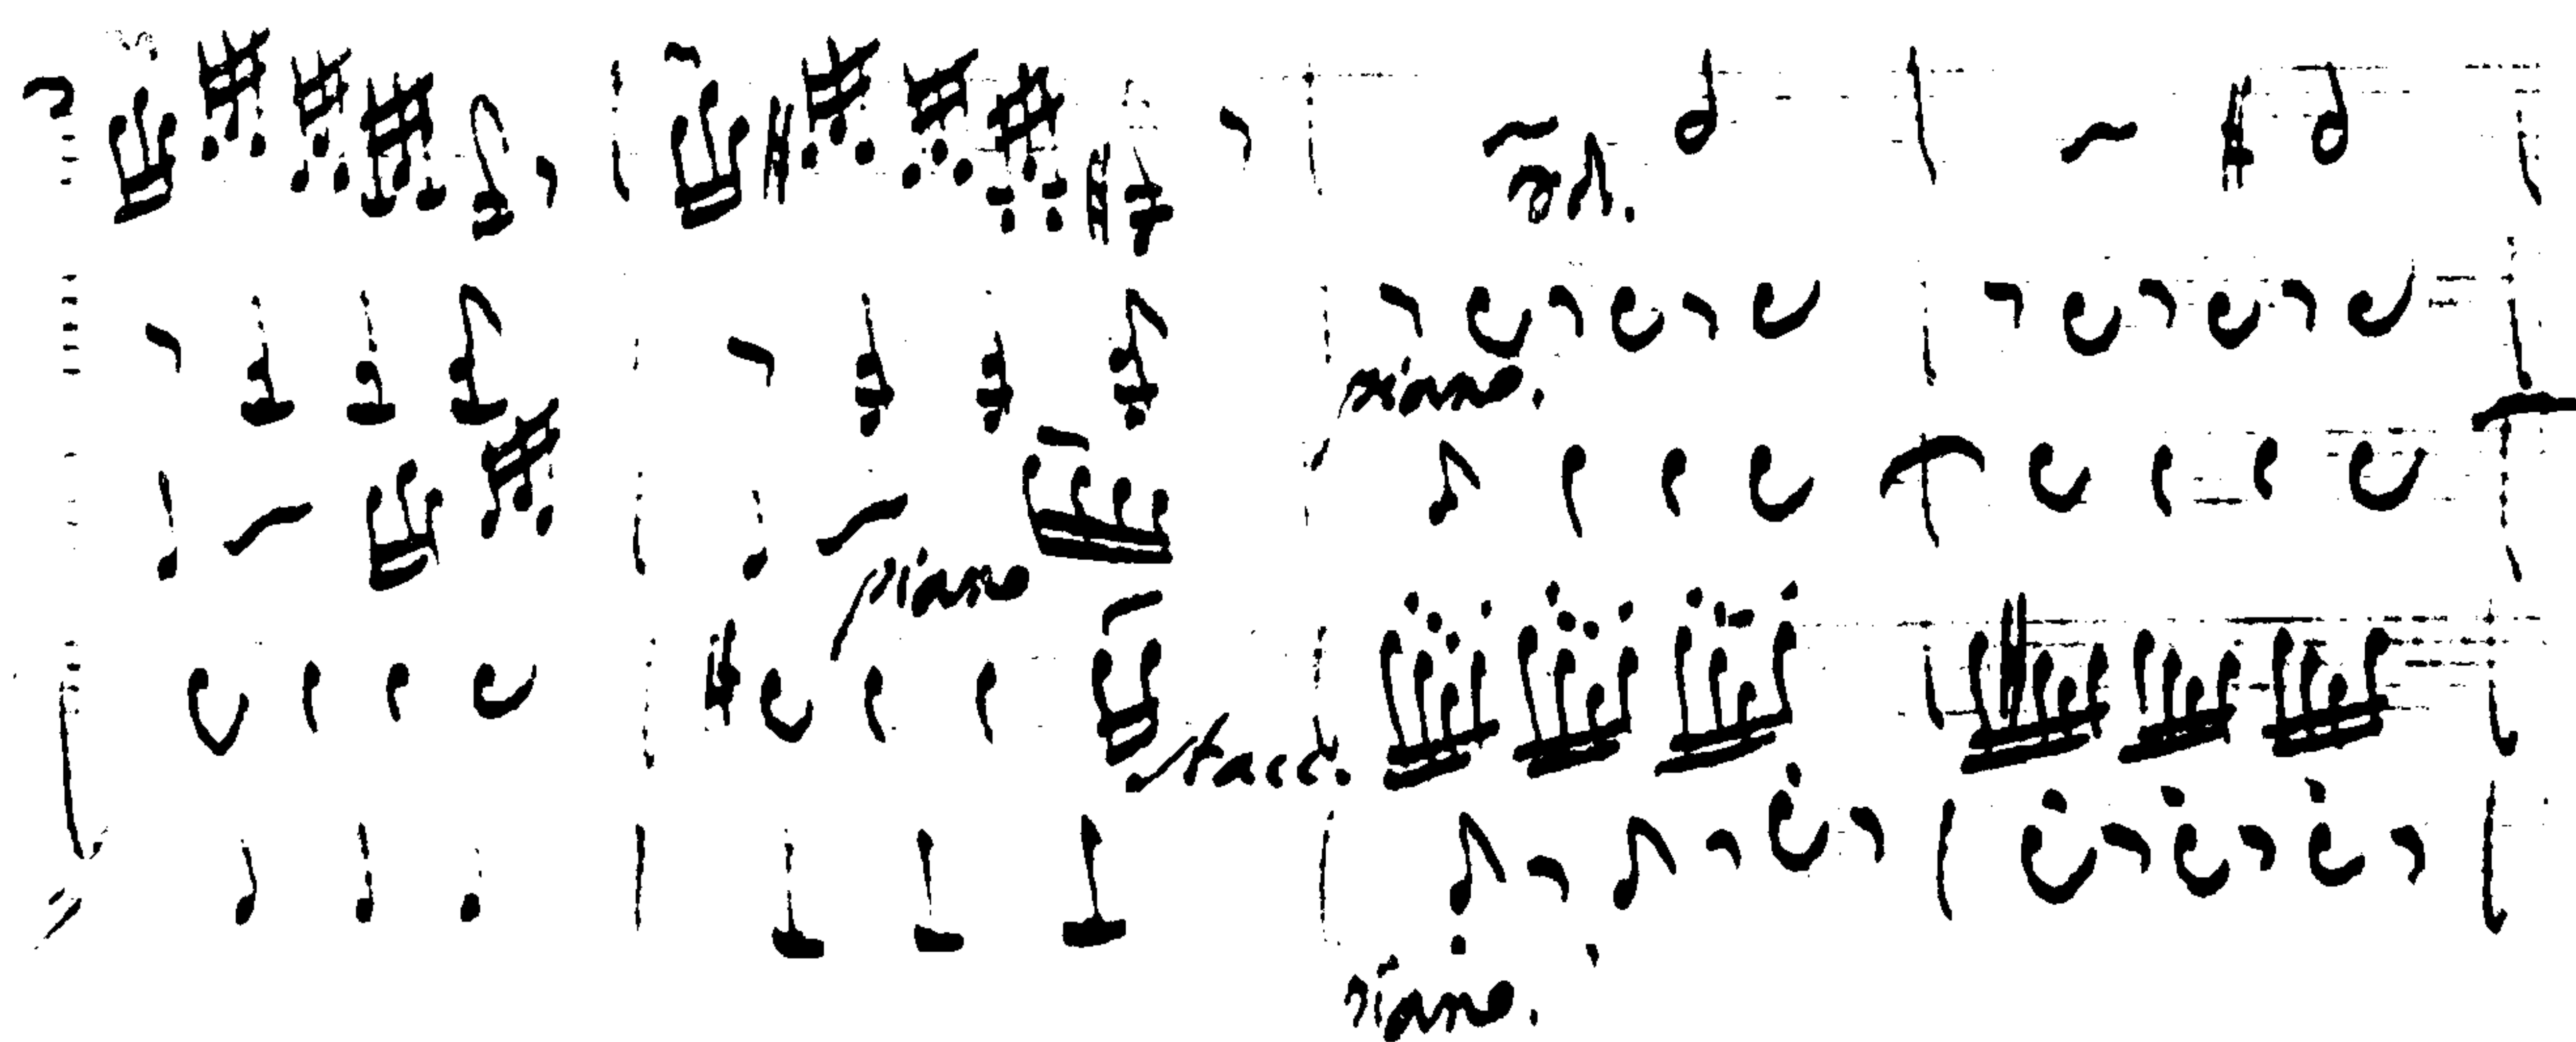 piano.
piano
stacc.
piano.